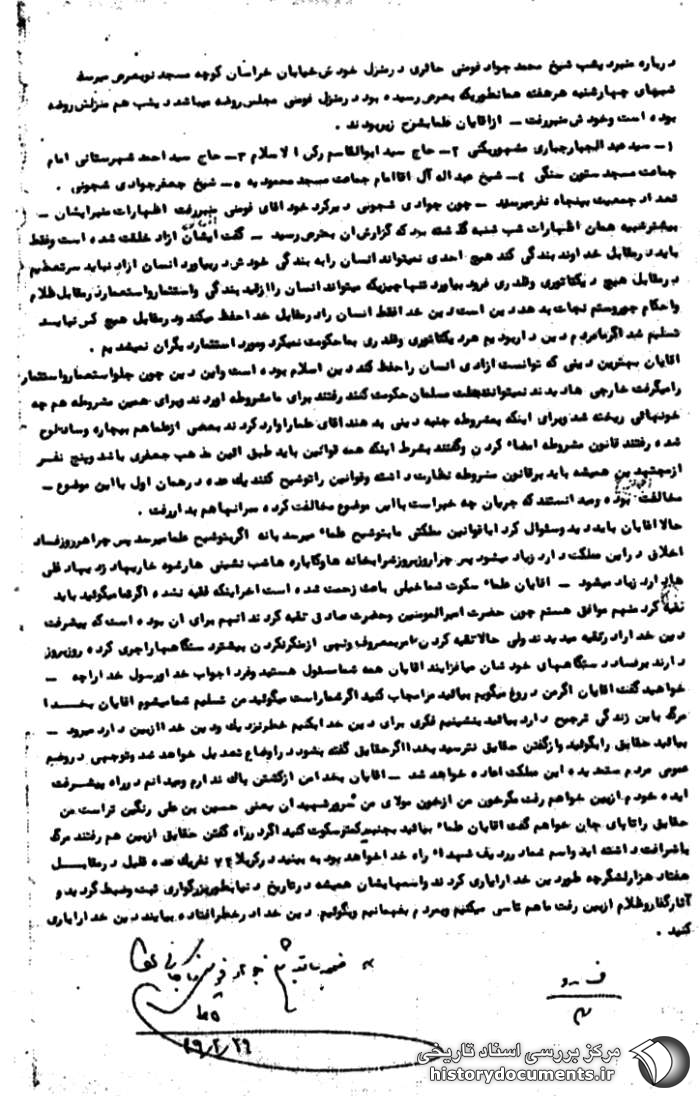 درباره منبر دیشب شیخ محمد جواد فومنی حائری در منزل خودش خیابان خراسان کوچه مسجد نو بعرض میرسد
شبهای چهارشنبه هر هفته همانطوریکه بعرض رسیده بود در منزل فومنی مجلس روضه میباشد دیشب هم منزلش روضه
بوده است و خودش منبر رفت – از اقایان علما بشرح زیر بودند .
۱– سید عبد الجبار جباری ۲– حاج سید ابوالقاسم رکن الاسلام ۳– حاج سید احمد شهرستانی امام
جماعت مسجد ستون سنگی ۴– شیخ عبداله آل اقا امام جماعت مسجد محمودیه ۵– شیخ جعفر جوادی شجونی .
تعداد جمعیت بپنجاه نفر میرسید – چون جوادی شجونی دیر کرد خود اقای فومنی منبر رفت اظهارات منبر ایشان –
بیشتر شبیه همان اظهارات شب شنبه گذشته بود که گزارش ان بعرض رسید – گفت انسان ازاد خلقت شده است و فقط
باید در مقابل خداوند بندگی کند هیچ احدی نمیتواند انسان را به بندگی خودش در بیاورد انسان ازاد نباید سر تعظیم
در مقابل هیچ دیکتاتوری و قلدری فرود بیاورد تنها چیزیکه میتواند انسان را از قید بندگی و استثمار و استعمار در مقابل ظلام
و احکام جور و ستم نجات بدهد دین است دین خدا فقط انسان را در مقابل خدا حفظ میکند و در مقابل هیچ کس نباید
تسلیم شد اگر ما مردم دین دار بودیم هر دیکتاتوری و قلدری بما حکومت نمیکرد و مورد استثمار دیگران نمیشدیم .
اقایان بهترین دینی که توانست ازادی انسان را حفظ کند دین اسلام بوده است و این دین چون جلو استعمار و استثمار
را میگرفت خارجی ها دیدند نمیتوانند بملت مسلمان حکومت کنند رفتند برای ما مشروطه اوردند و برای همین مشروطه هم چه
خونهائی ریخته شد و برای اینکه بمشروطه جنبه دینی بدهند اقای علما را وارد کردند بعضی از علما هم بیچاره و ساده لوح
شده رفتند قانون مشروطه امضاء کردن و گفتند بشرط اینکه همه قوانین باید طبق ائین مذهب جعفری باشد و پنج نفر
از مجتهدین همیشه باید بر قانون مشروطه نظارت داشته و قوانین را توشیح کنند یک عده در همان اول با این موضوع –
مخالفت بوده و میدانستند که جریان چه خبر است با این موضوع مخالفت کرده سر انها هم بدار رفت .
حالا اقایان باید دید و سئوال کرد ایا قوانین مملکتی ما بتوشیح علماء میرسد یا نه اگر بتوشیح علما میرسد پس چرا هر روز فساد
اخلاق در این مملکت دارد زیاد میشود پس چرا روز بروز شرابخانه ها و کاباره ها شب نشینی ها
ها دارد زیاد میشود – اقایان علماء سکوت شما خیلی باعث زحمت شده است اخر اینکه تقیه نشده اگر شما میگوئید باید
تقیه کرد منهم موافق هستم چون حضرت امیر المومنین و حضرت صادق تقیه کردند انهم برای ان بوده است که پیشرفت
دین خدا را در تقیه میدیدند ولی حالا تقیه کردن امر بمعروف و نهی از منکر نکردن بیشتر دستگاهها را جری کرده روز بروز
دارند بر فساد دستگاههای خودشان میافزایند اقایان همه شما مسئول هستید و فردا جواب خدا و رسول خدا را چه –
خواهید گفت اقایان اگر من دروغ میگویم بیائید مرا مجاب کنید اگر شما راست میگوئید من تسلیم شما میشوم اقایان بخدا
مرگ باین زندگی ترجیح دارد بیائید بنشینیم فکری برای دین خدا بکنیم خطر نزدیک و دین خدا از بین دارد میرود –
بیائید حقایق را بگوئید و از گفتن حقایق نترسید بخدا اگر حقایق گفته بشود در اوضاع تعدیل خواهد شد و توجهی در وضع
عمومی مردم ستمدیده این مملکت اعاده خواهد شد – اقایان بخدا من از کشتن باک ندارم و میدانم در راه پیشرفت
ایده خودم از بین خواهم رفت مگر خون من از خون مولای من سرور شهیدان یعنی حسین بن علی رنگین تر است من
حقایق را تا پای جان خواهم گفت اقایان علماء بیائید بجنبید کمتر سکوت کنید اگر در راه گفتن حقایق از بین هم رفتند مرگ
با شرافت داشته اید و اسم شما در ردیف شهداء راه خدا خواهد بود به بینید در کربلا ۷۲ نفر یک عده قلیل در مقابل
هفتاد هزار لشگر چه طور دین خدا را یاری کردند و اسمهایشان همیشه در تاریخ دنیا بطور بزرگواری ثبت و ضبط گردید و
آثار کفار و ظلام از بین رفت ما هم تاسی میکنیم و بمردم بفهمانیم و بگوئیم دین خدا در خطر افتاده بیایند دین خدا را یاری
کنید .
۴۹/۲/۲۶
مرکز بررسی اسناد تاریخی
historydocuments.ir